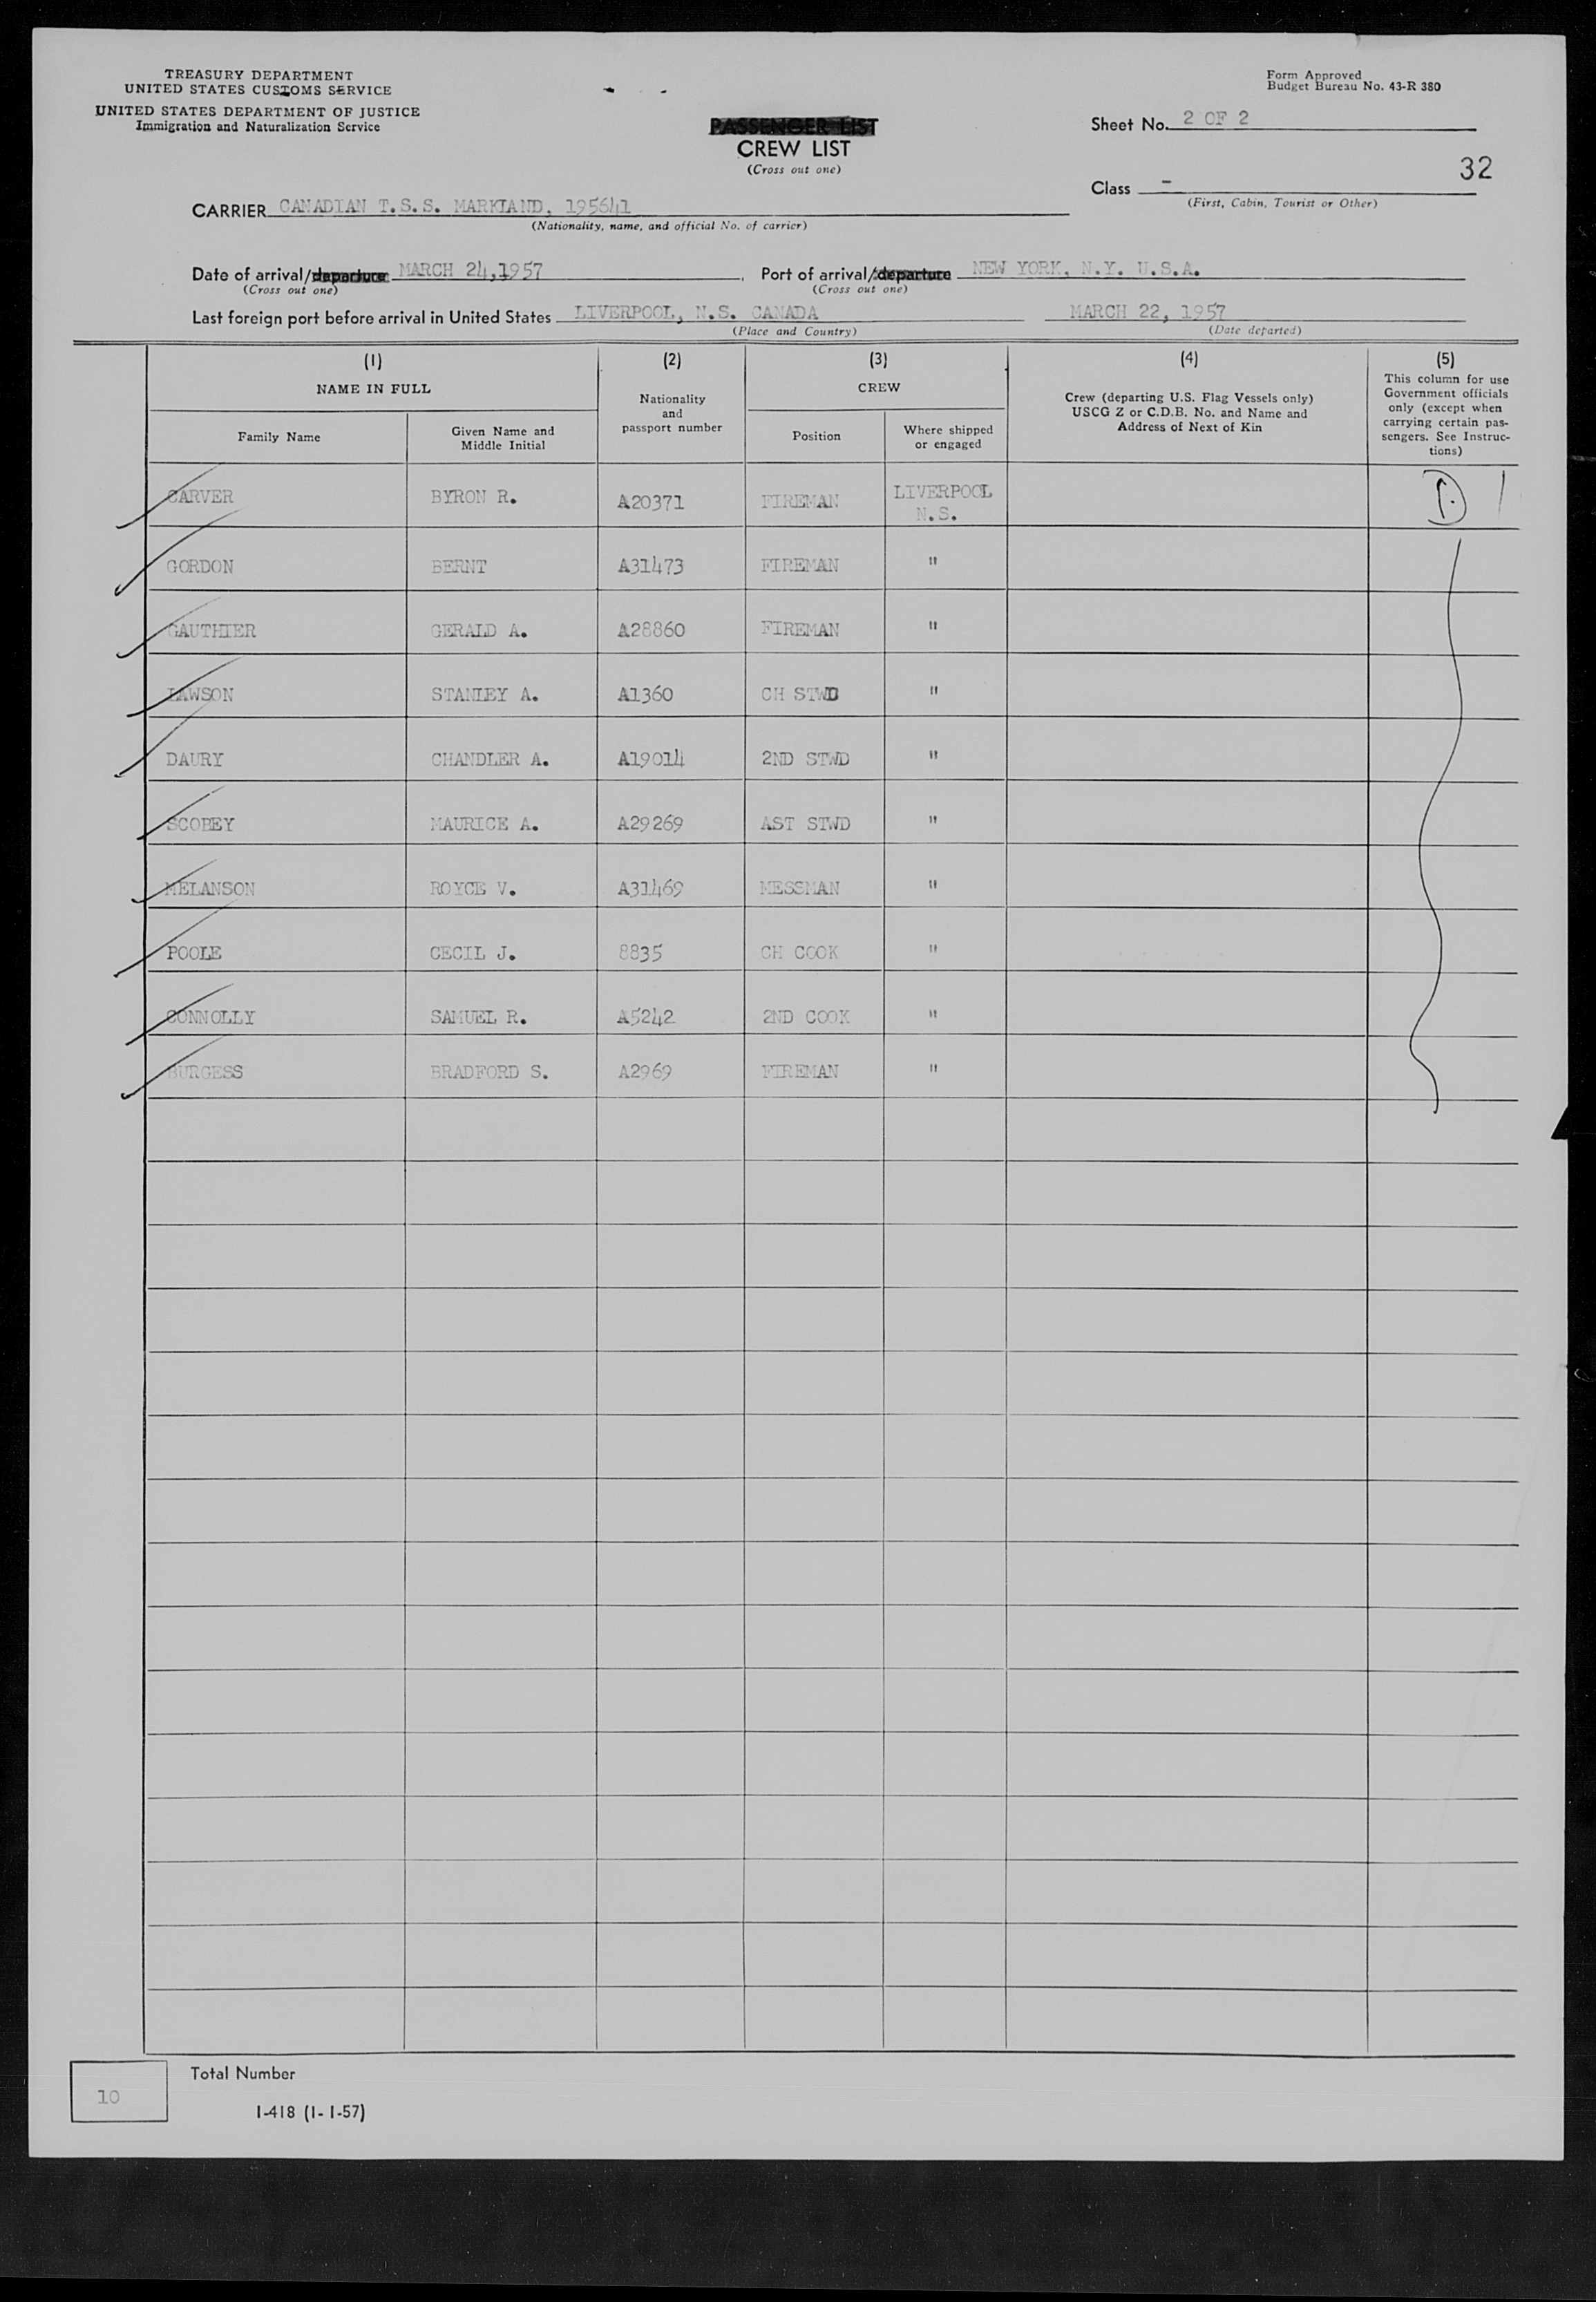 TREASURY DEPARTMENT
UNITED STATES CUSTOMS SERVICE
UNITED STATES DEPARTMENT OF JUSTICE
Immigration and Naturalization Service
Form Approved
Budget Bureau No. 43-R 380
PASSENGER LIST
CREW LIST
(Cross out one)
Sheet No. 2 OF 2
32
Class -
(First, Cabin, Tourist or Other)
CARRIER CANADIAN T.S.S. MARKLAND, 195641
(Nationality, name, and official No. of carrier)
Date of arrival/departure MARCH 24,1957. Port of arrival/departure NEW YORK, N.Y. U.S.A.
(Cross out one) (Cross out one)
Last foreign port before arrival in United States LIVERPOOL, N.S. CANADA MARCH 22, 1957
(Place and Country) (Date departed)
(1) (2) (3) (4) (5)
NAME IN FULL
Family Name
Given Name and
Middle Initial
Nationality
and
passport number
CREW
Position
Where shipped
or engaged
Crew (departing U.S. Flag Vessels only)
USCG Z or C.D.B. No. and Name and
Address of Next of Kin
This column for use
Government officials
only (except when
carrying certain pas-
sengers. See Instruc-
tions)
CARVER BYRON R. A20371 FIREMAN LIVERPOOL
N.S.
GORDON BERNT A31473 FIREMAN "
GAUTHIER GERALD A. A28860 FIREMAN "
LAWSON STANLEY A. A1360 CH STWD "
DAURY CHANDLER A. A19014 2ND STWD "
SCOBEY MAURICE A. A29269 AST STWD "
MELANSON ROYCE V. A31469 MESSMAN "
POOLE CECIL J. 8835 CH COOK "
CONNOLLY SAMUEL R. A5242 2ND COOK "
BURGESS BRADFORD S. A2969 FIREMAN "
10
Total Number
I-418 (1-1-57)